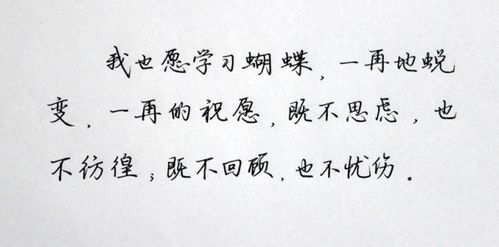 我也愿学习蝴蝶，一再地蜕
变，一再的祝愿，既不思虑，也
不彷徨；既不回顾，也不忧伤。